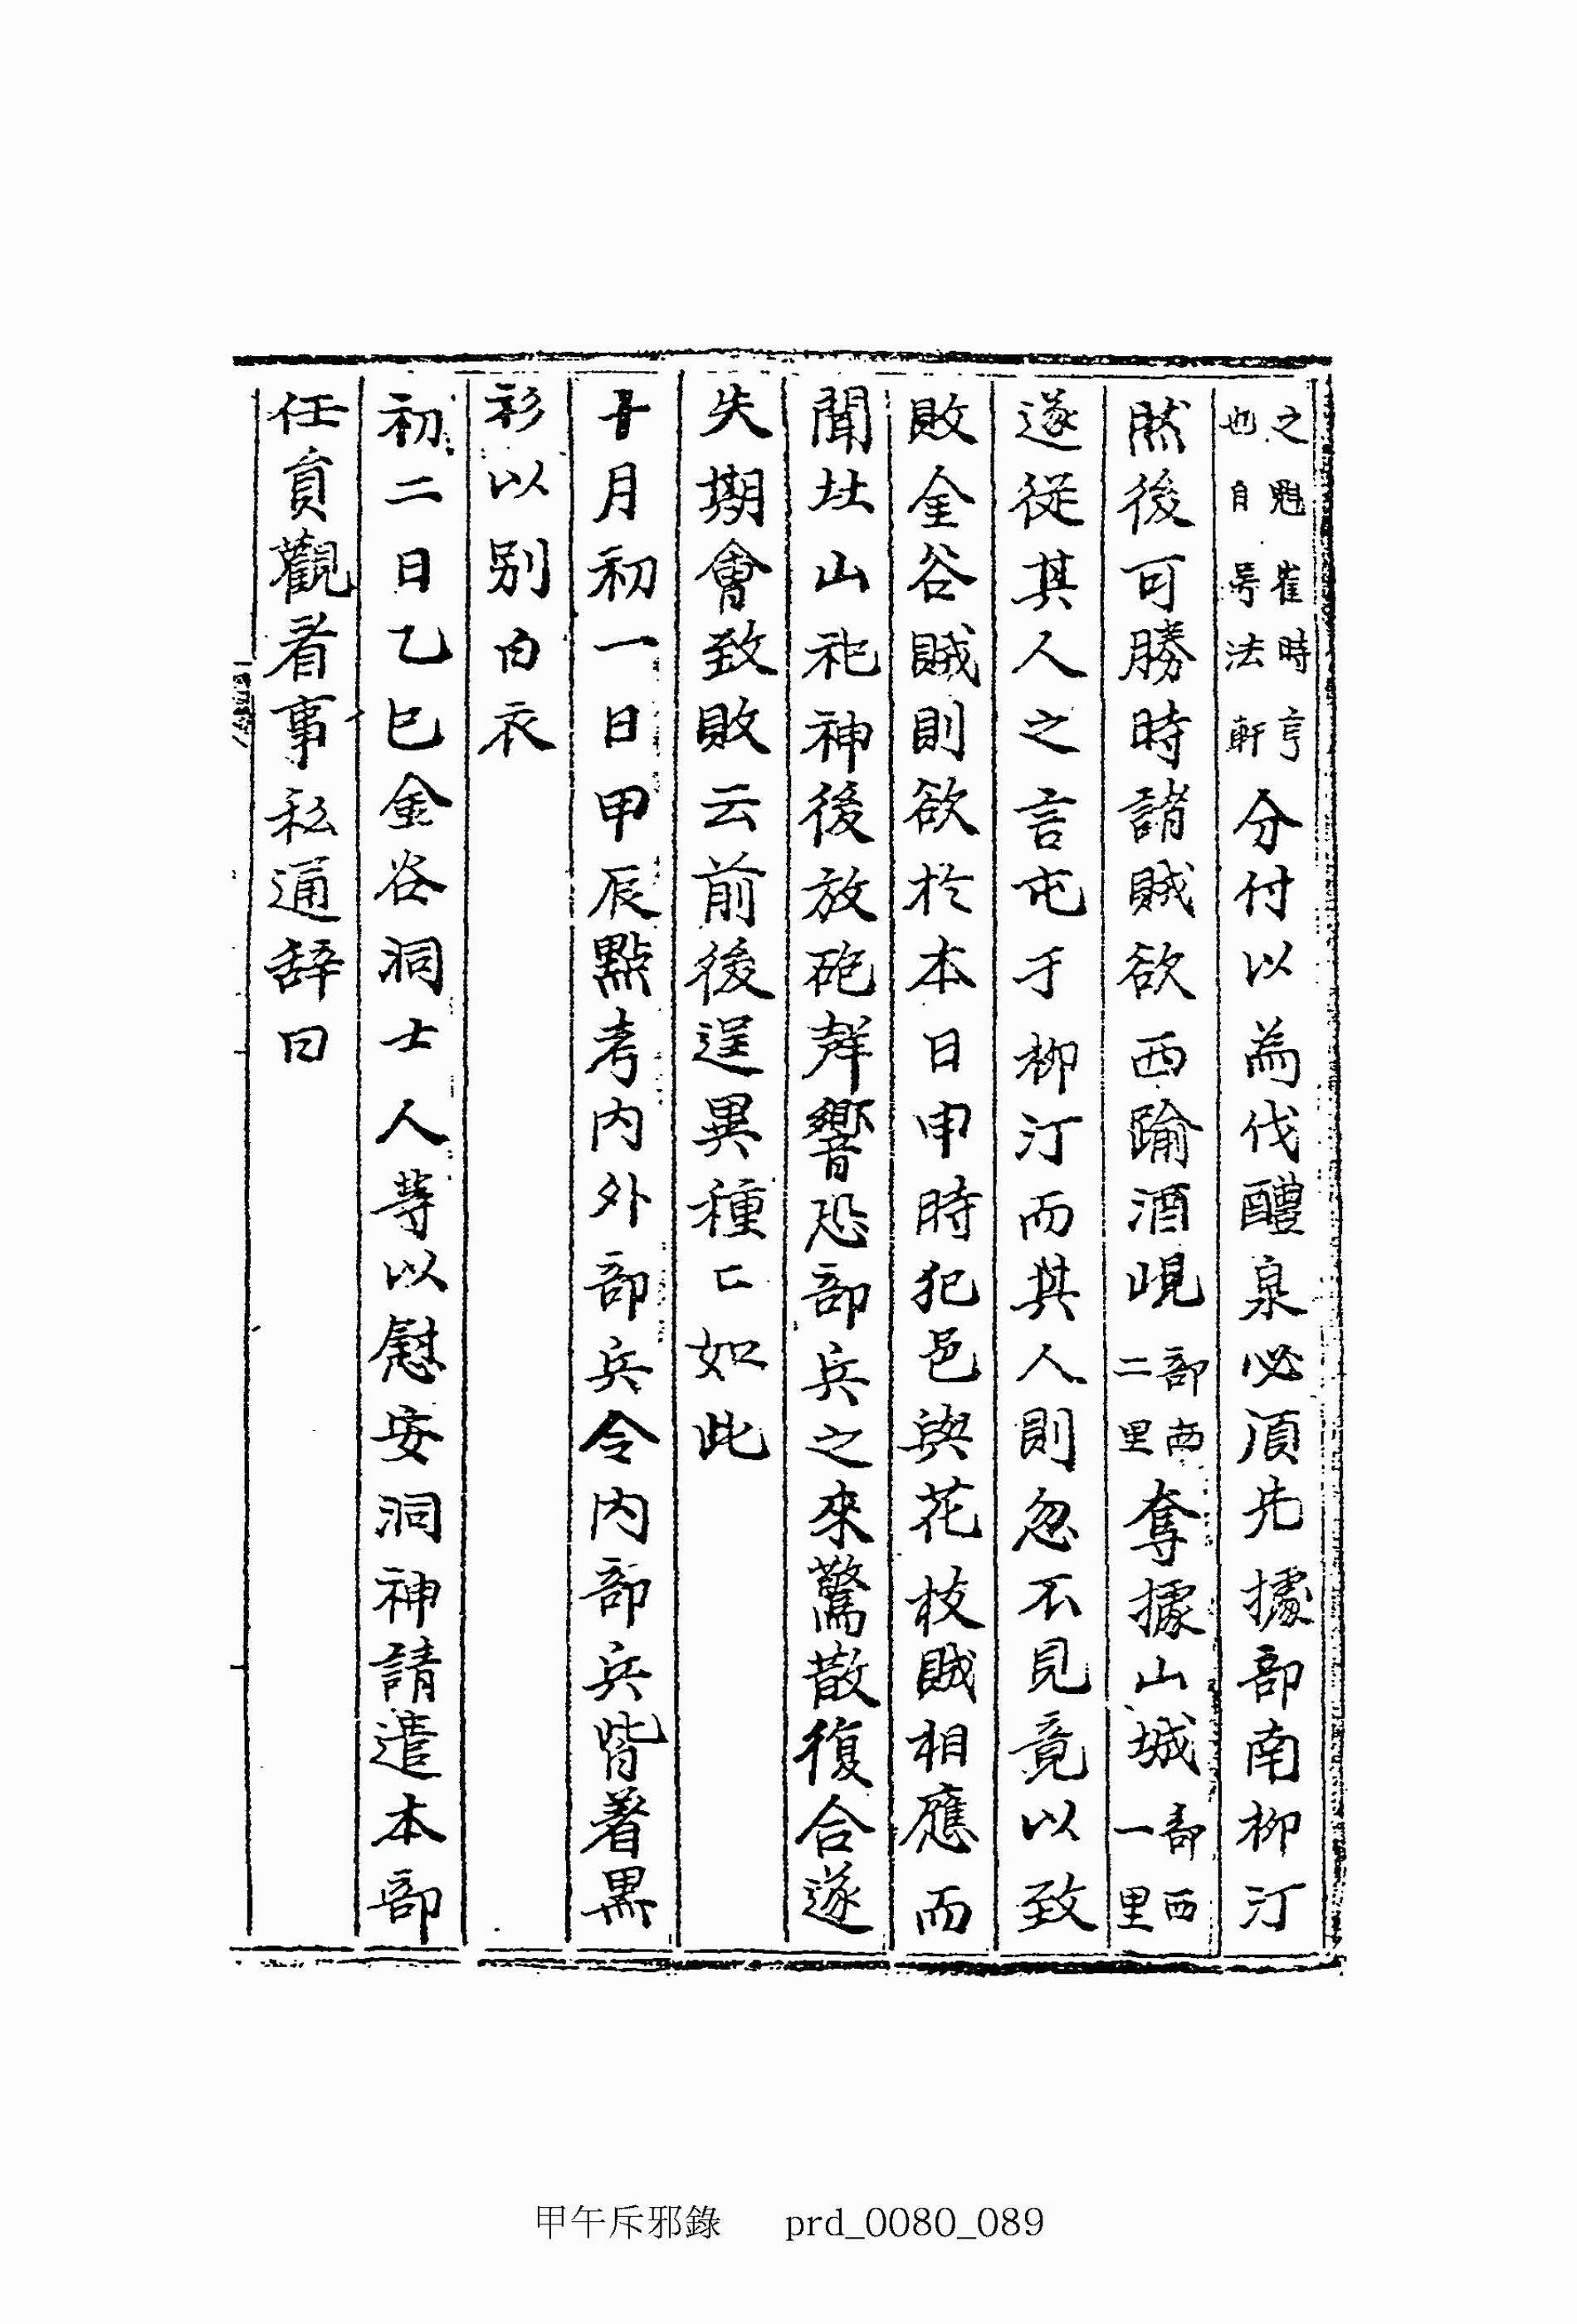 之魁崔時亨也自号法軒分付以為伐醴泉必須先據部南柳汀
然後可勝時諸賊欲西踰酒峴部南二里奪據山城部西一里
遂從其人之言屯于柳汀而其人則忽不見竟以致
敗金谷賊則欲於本日申時犯邑與花枝賊相應而
聞北山祀神後放砲聲響恐部兵之來驚散復合遂
失期會致敗云前後逞異種〻如此
十月初一日甲辰點考內外部兵令內部兵皆着黑
衫以别白衣
初二日乙巳金谷洞士人等以慰安洞神請遣本部
任員觀看事私通辞曰
甲午斥邪錄 prd_0080_089